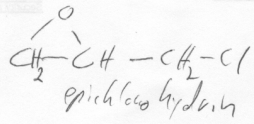 O
CH2-CH-CH2-Cl
epichlorohydrin